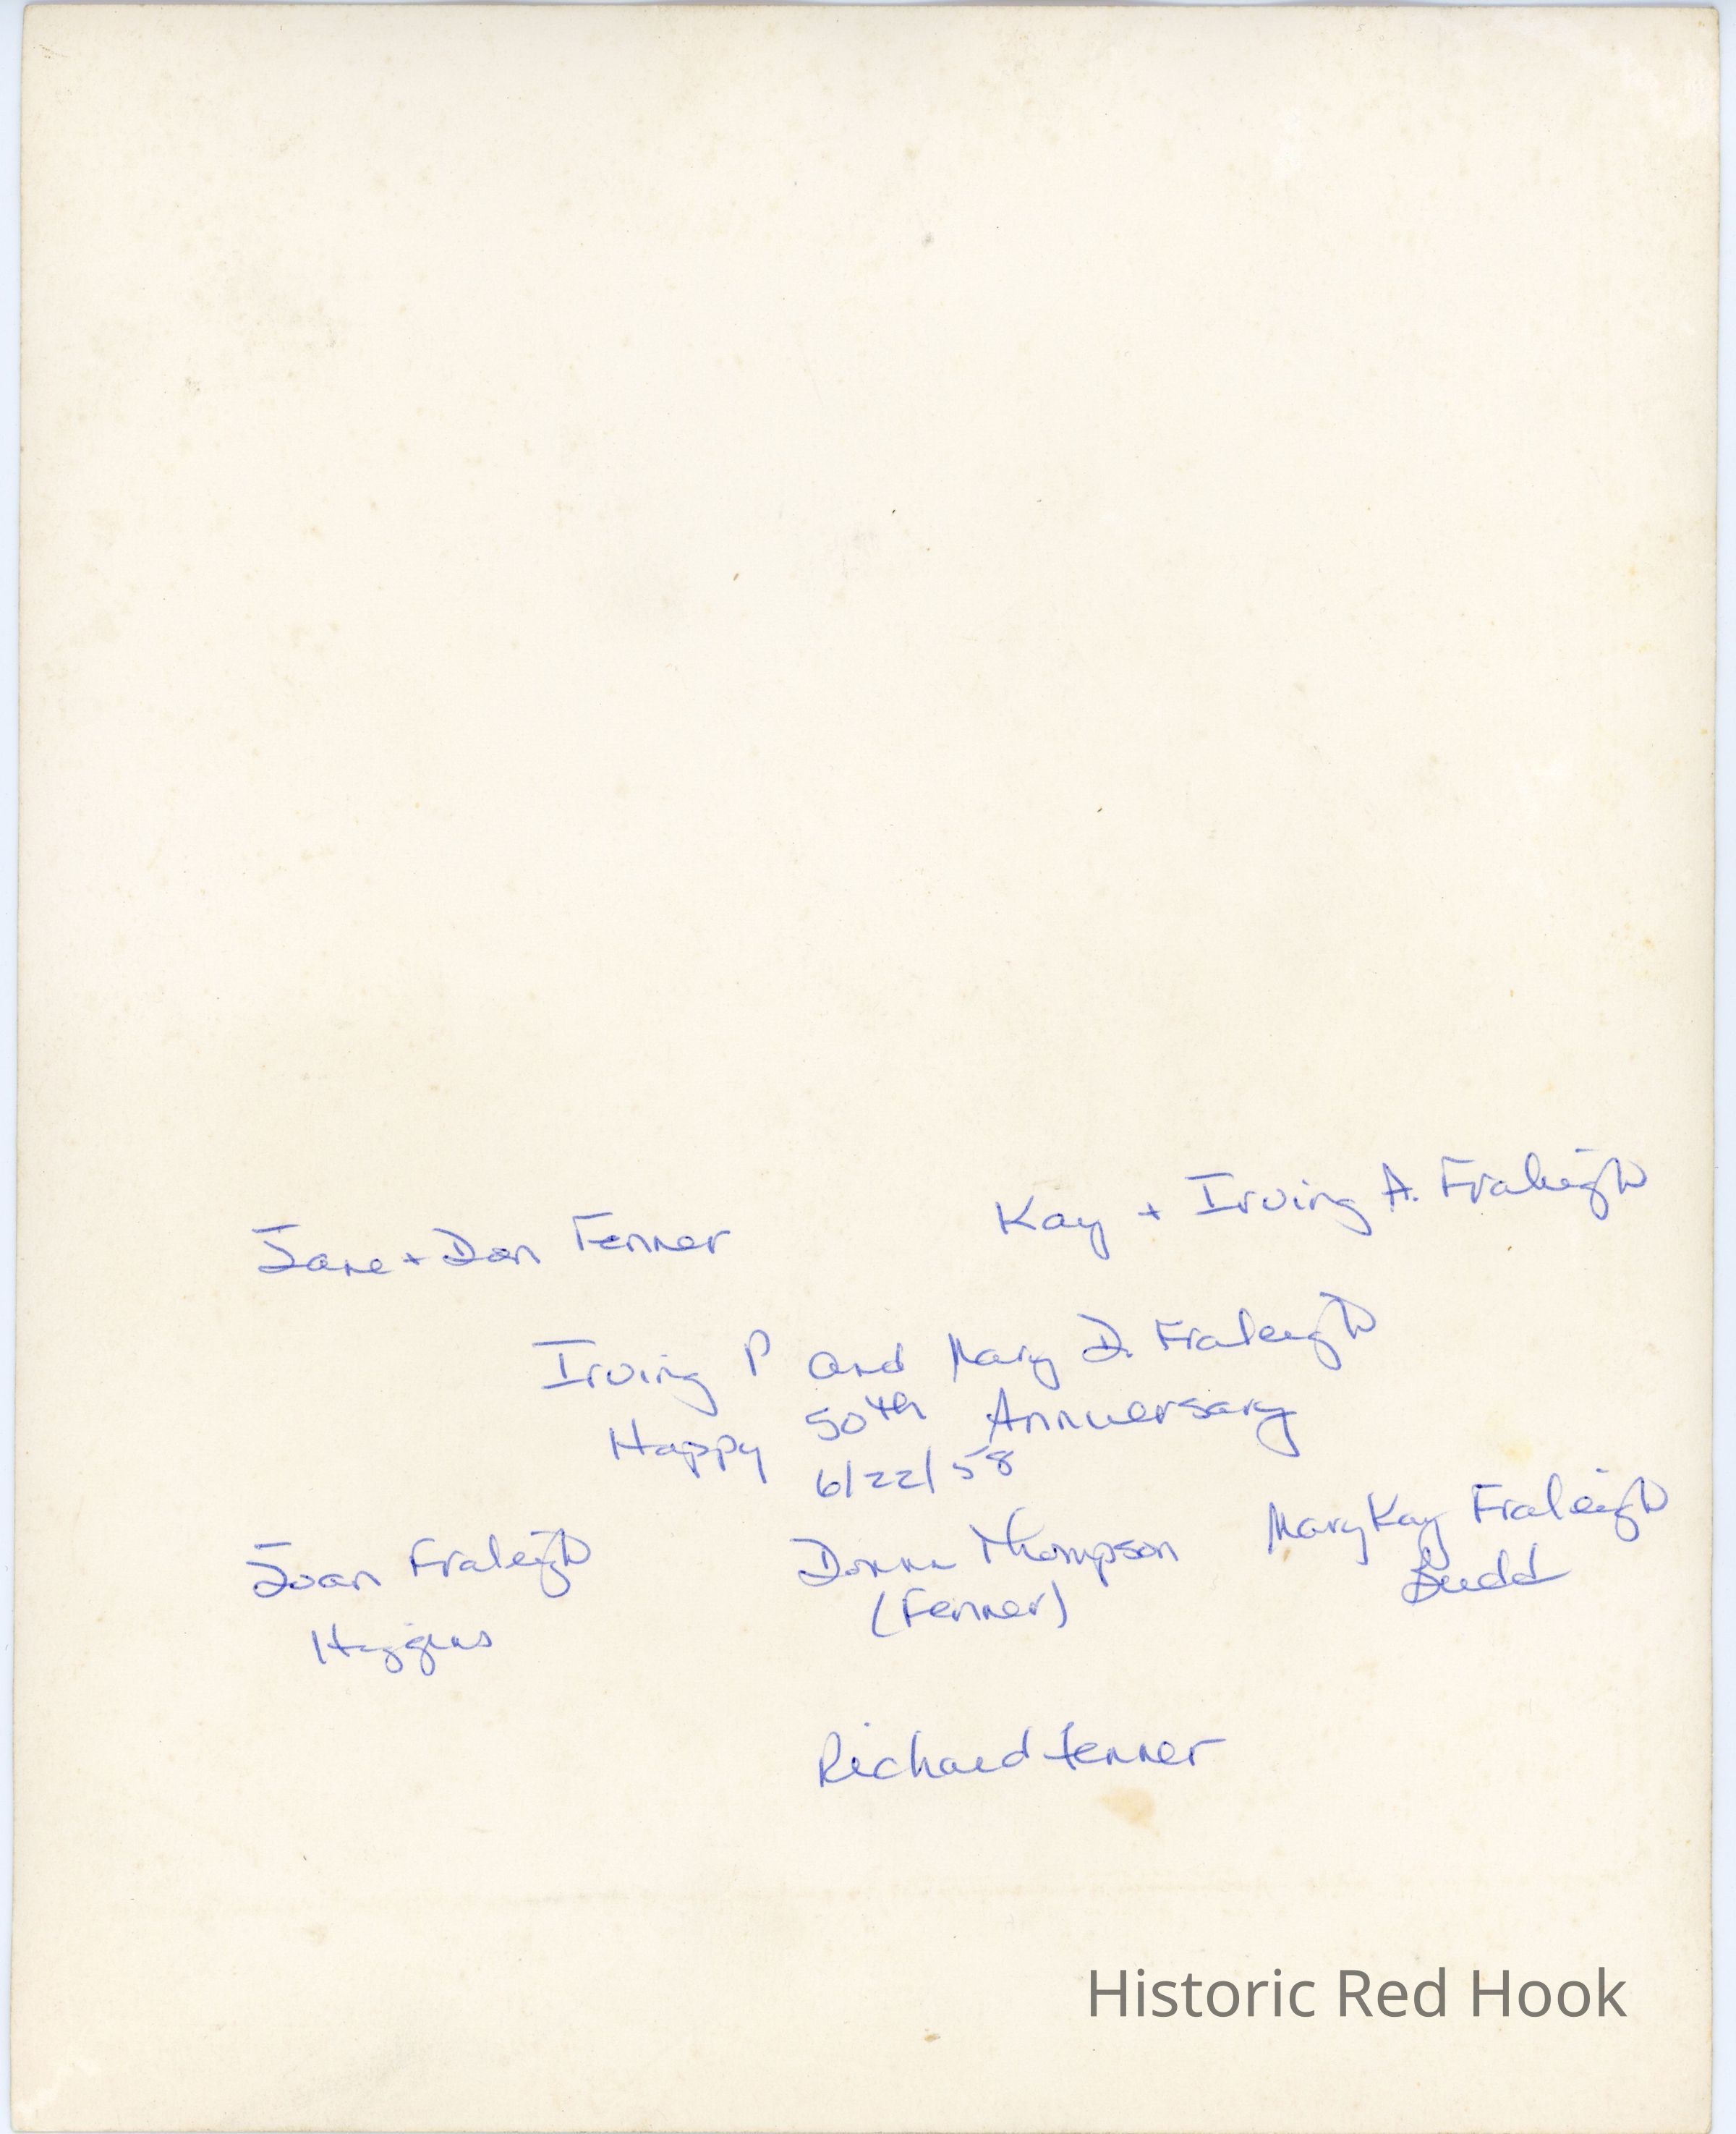 Kay + Irving A. Fraleigh
Jane + Don Fenner
Irving P and Mary D. Fraleigh
Happy 50th Anniversary
6/22/58
Mary Kay Fraleigh
Budd
Joan Fraleigh
Higgins
Donna Thompson
(Fenner)
Richard Fenner
Historic Red Hook